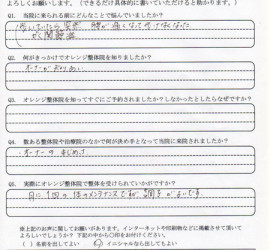 よろしくお願いします。(できるだけ具体的に書いていただけると助かります。)
Q1. 当院に来られる前にどんなことで悩んでいましたか?
歩いていたら突然 腰が痛くなって歩けなくなった
Q2. 何がきっかけでオレンジ整体院を知りましたか?
オーナーが知り合い
Q3. オレンジ整体院を知ってすぐにご予約されましたか?しなかったとしたらなぜですか?
Q4. 数ある整体院や治療院のなかで何が決め手となって当院に来院されましたか?
オーナーの
Q5. 実際にオレンジ整体院で整体を受けられていかがですか?
月に1回の体のメンテナンスで 調子がよいです。
※上記のお声に関してお願いがあります。インターネットや印刷物などに掲載させて頂いて
よろしいでしょうか? 下記の中から○印をお付けください。
) 名前を出してよい
) イニシャルなら出してもよい